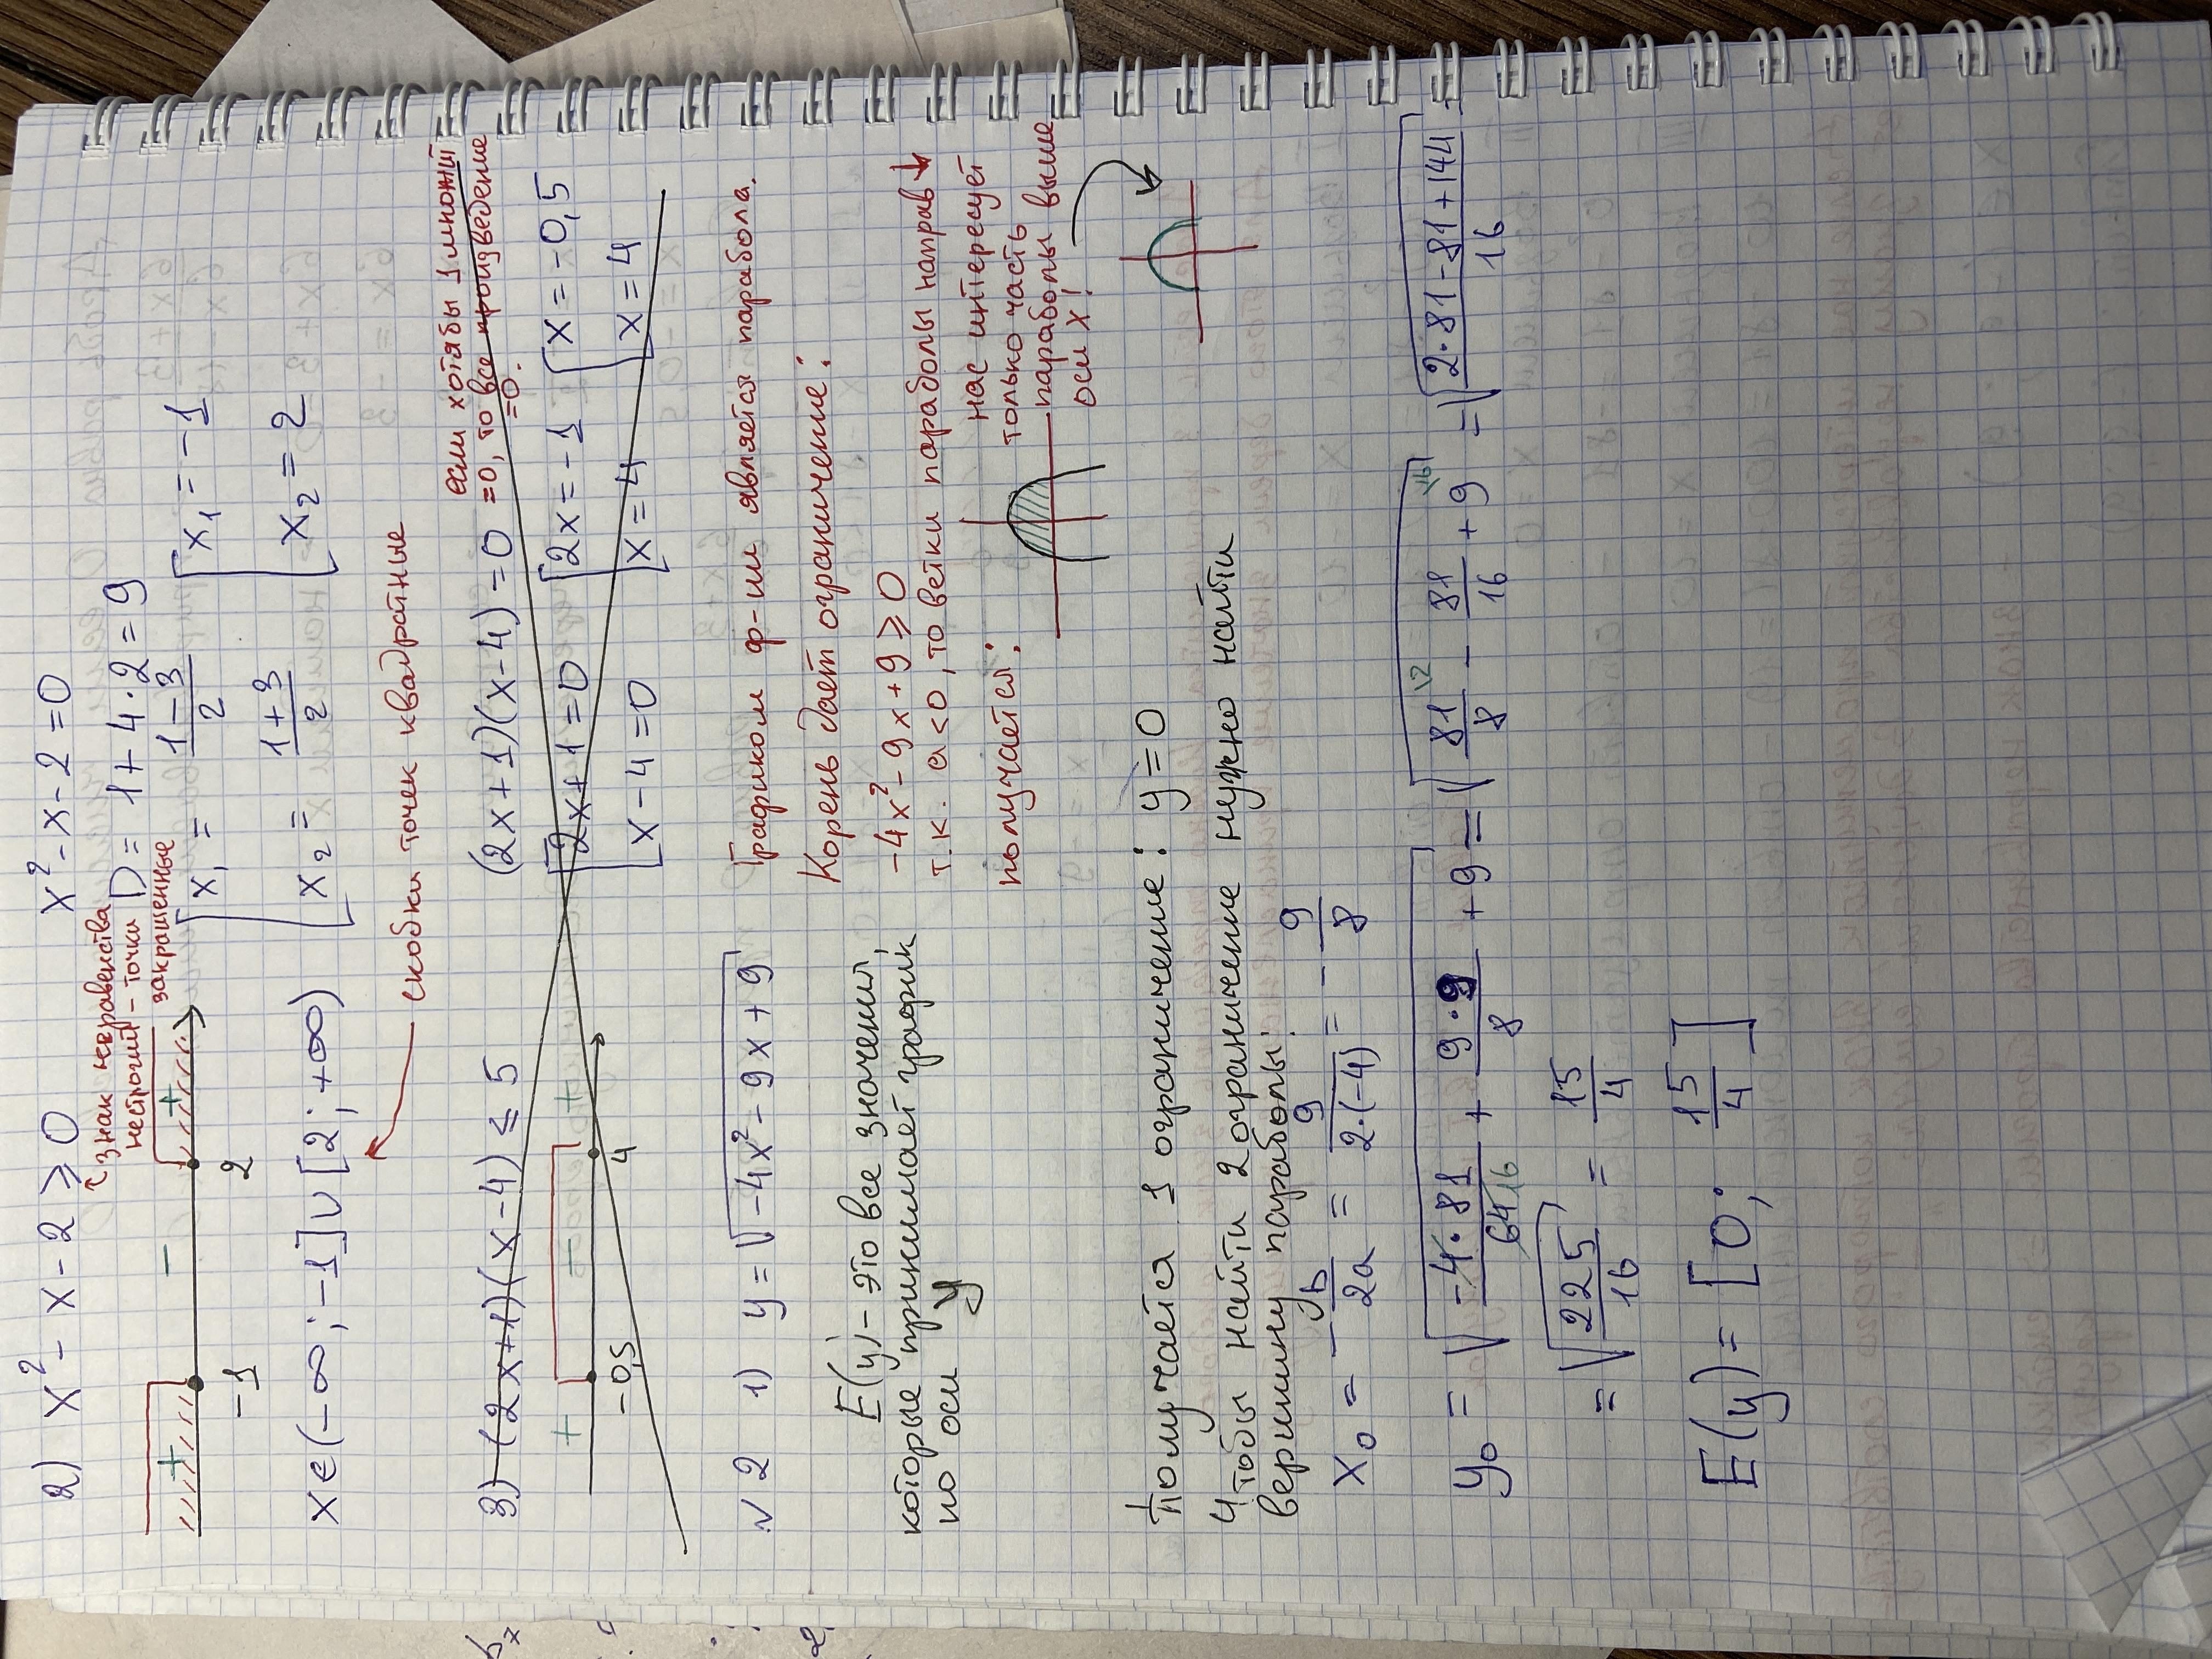 2) x² - x - 2 ⩾ 0
x² - x - 2 = 0
знак неравенства
нестрогий - точки
закрашенные
D = 1 + 4 · 2 = 9
+ - +
-1 2
x₁ = (1 - 3)/2
x₂ = (1 + 3)/2
[x₁ = -1
[x₂ = 2
x ∈ (-∞; -1] ∪ [2; +∞)
скобки точек квадратные
3) (2x+1)(x-4) ≤ 5
(2x+1)(x-4) = 0
если хотябы 1 множит
=0, то все произведение
=0.
+ - +
-0,5 4
[2x+1 = 0
[x - 4 = 0
[2x = -1
[x = 4
[x = -0,5
[x = 4
√ 2 1) y = √(-4x² - 9x + 9)
Графиком ф-ии является парабола.
E(y) - это все значения,
которые принимает график
по оси y
Корень дает ограничение:
-4x² - 9x + 9 ⩾ 0
т.к. a < 0, то ветки параболы направ ↓
получается:
нас интересует
только часть
параболы выше
оси x!
Получается 1 ограничение: y = 0
Чтобы найти 2 ограничение нужно найти
вершину параболы:
x₀ = -b/2a = 9/(2·(-4)) = -9/8
y₀ = √(-4·81/64 16 + 9·9/8 + 9) = √(81/8 \2 - 81/16 + 9 \16) = √((2·81 - 81 + 144)/16) =
= √(225/16) = 15/4
E(y) = [0; 15/4]